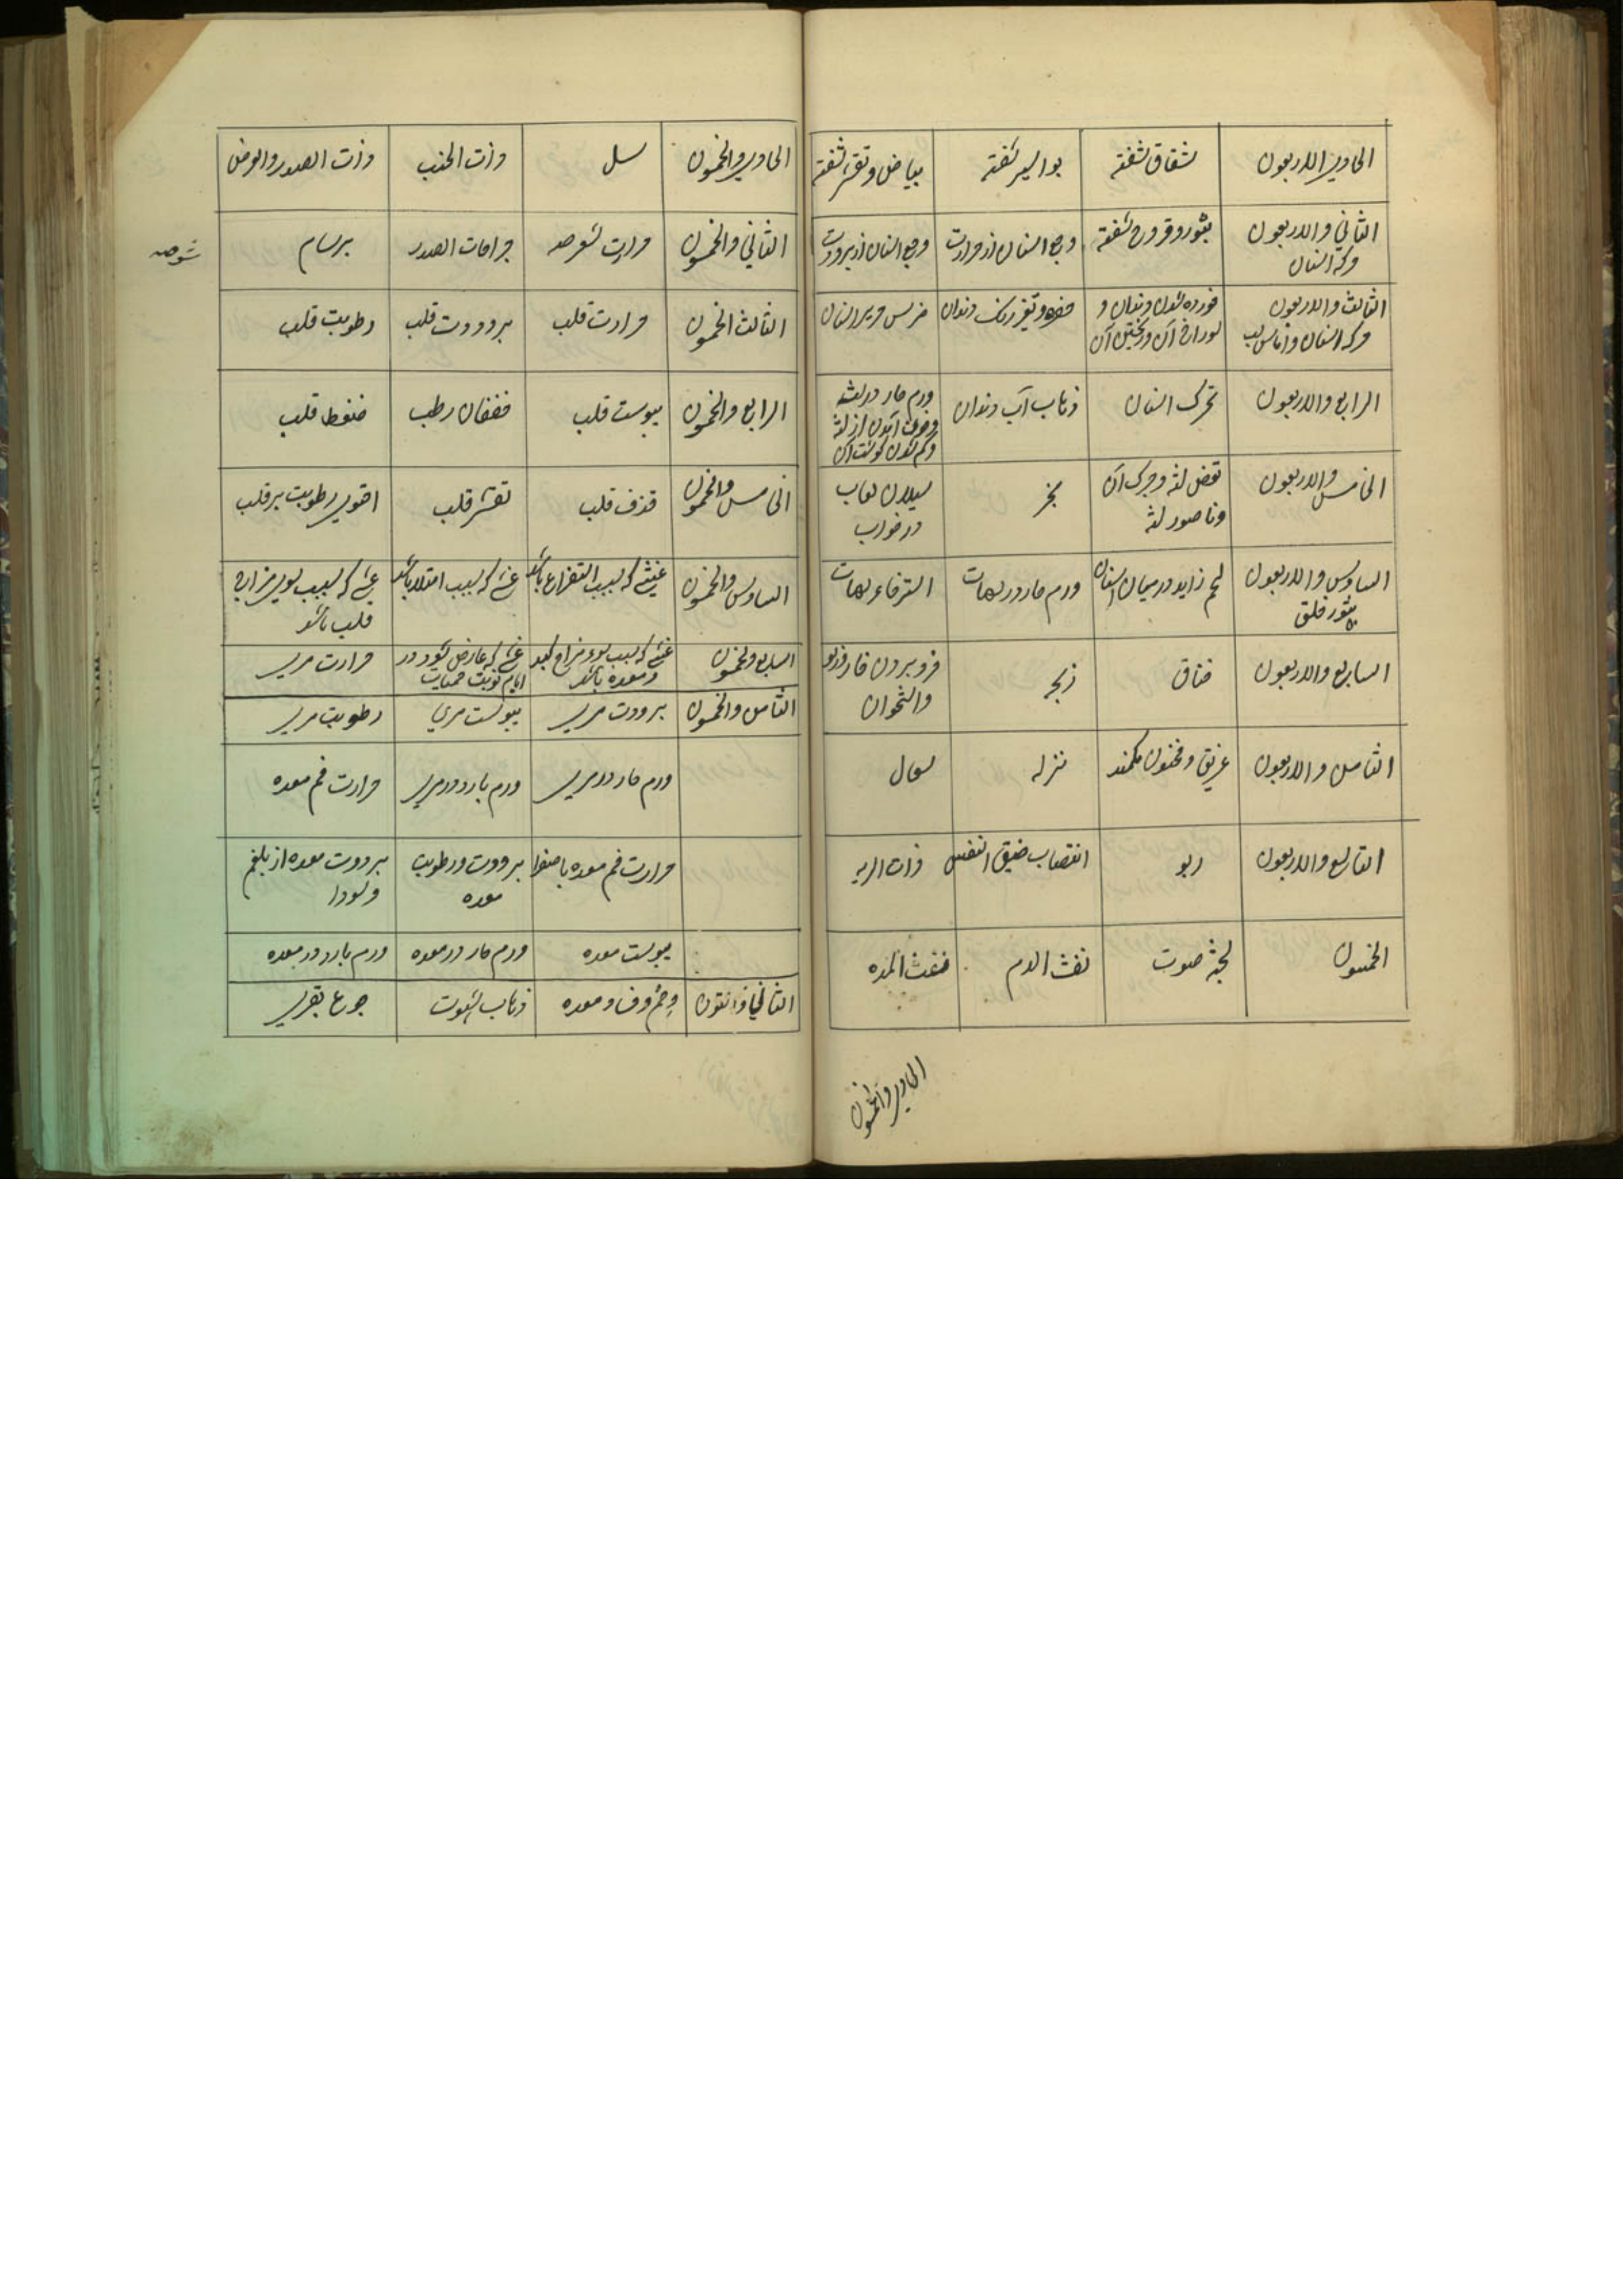 الحادی والاربعون
شقاق شفته
بواسیر شفته
بیاض و تقشر شفته
الثانی والاربعون
وجه اسنان
بثور و قروح شفته
وجع اسنان از حرارت
وجع اسنان از برودت
الثالث والاربعون
خورده شدن دندان و
سوراخ آن و ریختن آن
حفره و تغیر رنگ دندان
ضرس و صریر اسنان
الرابع والاربعون
تحرک اسنان
ذهاب آب دندان
ورم حار در لثه
و خون آمدن از لثه
و کم شدن گوشت آن
الخامس والاربعون
وناصور لثه
بخر
سیلان لعاب
در خواب
السادس والاربعون
بثور حلق
لحم زاید در میان اسنان
ورم حار در لهات
استرخاء لهات
السابع والاربعون
خناق
ذبحه
فرو بردن خار و زلو
واستخوان
الثامن والاربعون
غریق و مخنوق بکمند
نزله
سعال
التاسع والاربعون
ربو
انتصاب ضیق النفس
ذات الریه
الخمسون
بحة صوت
نفث الدم
نفث المده
الحادی والخمسون
الحادی والخمسون
سل
وذات الجنب
وذات الصدر والعرض
الثانی والخمسون
جراحات الصدر
برسام
شوصه
الثالث الخمسون
حرارت قلب
برودت قلب
رطوبت قلب
الرابع والخمسون
یبوست قلب
خفقان رطب
ضغط قلب
الخامس والخمسون
قذف قلب
تقشر قلب
احتوی رطوبت بر قلب
السادس والخمسون
غشی که بسبب استفراغ باشد
غشی که بسبب امتلا باشد
غشی که بسبب سوی مزاج
قلب باشد
السابع والخمسون
غشی که بسبب سوء مزاج کبد
و معده باشد
غشی که عارض شود در
ایام نوبت حمیات
حرارت مری
الثامن والخمسون
برودت مری
یبوست مری
رطوبت مری
ورم حار در مری
ورم بارد در مری
حرارت فم معده
حرارت فم معده با صفرا
برودت و رطوبت
معده
برودت معده از بلغم
وسودا
یبوست معده
ورم حار در معده
ورم بارد در معده
ذهاب شهوت
جوع بقری